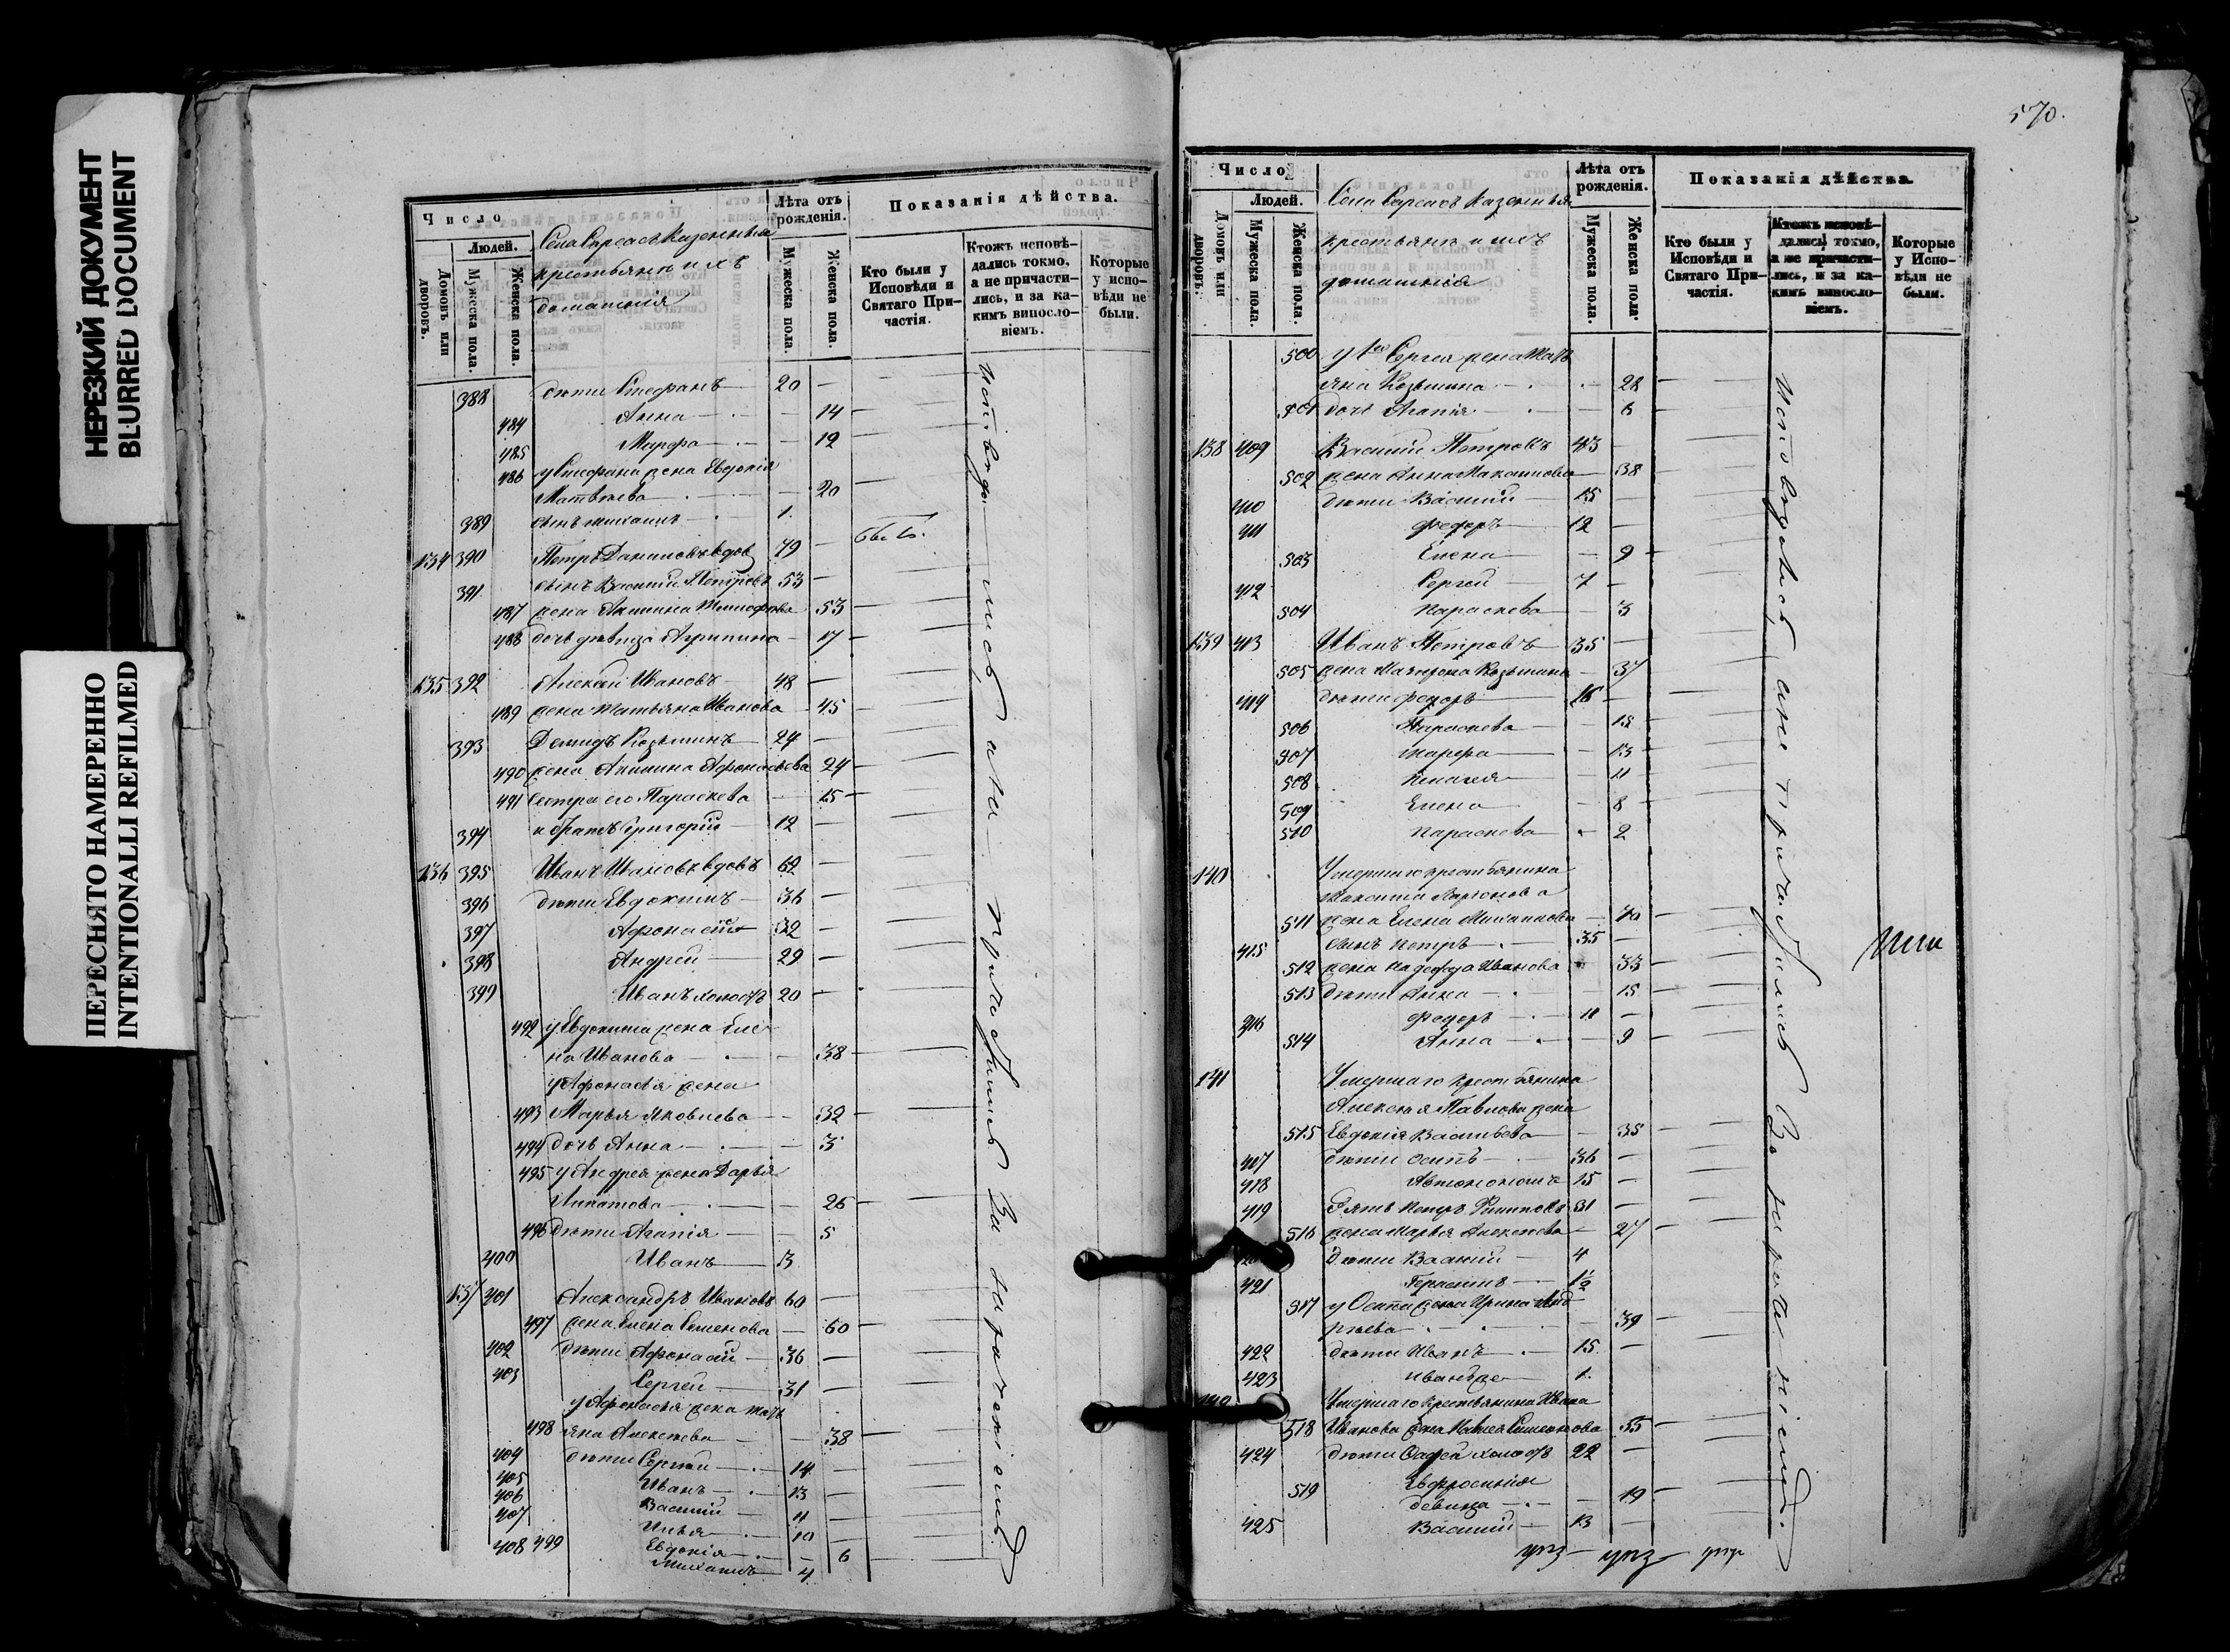 НЕРЕЗКИЙ ДОКУМЕНТ
BLURRED DOCUMENT
ПЕРЕСНЯТО НАМЕРЕННО
INTENTIONALLI REFILMED
Число
Людей.
Домовъ или дворовъ.
Мужеска пола.
Женска пола.
Села Сарсасъ Казенныя
крестьянъ и ихъ
домашнія
Лѣта отъ рожденія.
Мужеска пола.
Женска пола.
Показанія дѣйства.
Кто были у Исповѣди и Святаго Причастія.
Ктожъ исповѣдались токмо, а не причастились, и за какимъ винословіемъ.
Которые у исповѣди не были.
388 дѣти Стефанъ 20
484 Анна 14
485 Марфа 12
486 у Стефана жена Евдокія
Матвѣева 20
389 сынъ Михаилъ 1
134 390 Петръ Даниловъ вдов 79
391 сынъ Василій Петровъ 53
487 жена Акилина 53
488 дочь дѣвица Агрипина 17
135 392 Алексѣй Ивановъ 48
489 жена Татьяна Иванова 45
393 Демидъ Козьминъ 24
490 жена Акилина Афонасьева 24
491 сестра его Параскева 15
394 и братъ Григорій 12
136 395 Иванъ Ивановъ вдовъ 62
396 дѣти Евдокимъ 36
397 Афонасій 32
398 Андрей 29
399 Иванъ холостъ 20
492 у Евдокима жена Еле-
на Иванова 38
у Афонасья жена
493 Марья Яковлева 32
494 дочь Анна 3
495 у Андрея жена Дарья
Ипатова 26
496 дѣти Агапія 5
400 Иванъ 3
137 401 Александръ Ивановъ 60
497 жена Елена Семенова 60
402 дѣти Афонасій 36
403 Сергей 31
у Афонасья жена Тать
498 яна Алексѣева 38
404 дѣти Сергѣй 14
405 Иванъ 13
406 Василій 11
407 Илья 10
499 Евдокія 6
408 Михаилъ 4
исповѣдались а не причастились за нараченіемъ
570.
Число
Людей.
Домовъ или дворовъ.
Мужеска пола.
Женска пола.
Села Сарсасъ Казенныя
крестьянъ и ихъ
домашнія
Лѣта отъ рожденія.
Мужеска пола.
Женска пола.
Показанія дѣйства.
Кто были у Исповѣди и Святаго Причастія.
Ктожъ исповѣдались токмо, а не причастились, и за какимъ винословіемъ.
Которые у Исповѣди не были.
500 у Сергея жена Тать
яна Козьмина 28
501 дочь Агапія 6
138 409 Василій Петровъ 43
502 жена Анна Максимова 38
410 дѣти Василій 15
411 Федоръ 12
503 Елена 9
412 Сергей 7
504 Параскева 3
139 413 Иванъ Петровъ 35
505 жена Козьмина 37
414 дѣти Федоръ 16
506 Параскева 15
507 Марфа 13
508 Пелагея 11
509 Елена 8
510 Параскева 2
140 Умершаго крестьянина
Максима Ларионова
511 жена Елена Михаилова 70
415 сынъ Петръ 35
512 жена Надежда Иванова 33
513 дѣти Анна 15
416 Федоръ 11
514 Анна 9
141 Умершаго крестьянина
Алексея Павлова жена
515 Евдокія Васильева 35
417 дѣти Осипъ 36
418 15
419 Зять Петръ Филиповъ 31
516 жена Марья Алексѣева 27
дѣти Василій 4
421 Герасимъ 1½
517 у Осипа жена Ирина Анд
рѣева 39
422 дѣти Иванъ 15
423 Иванъ же 1
Умершаго крестьянина Ивана
518 Иванова жена 55
424 дѣти холостъ 22
519 Евфросинія
девица 19
425 Василій 13